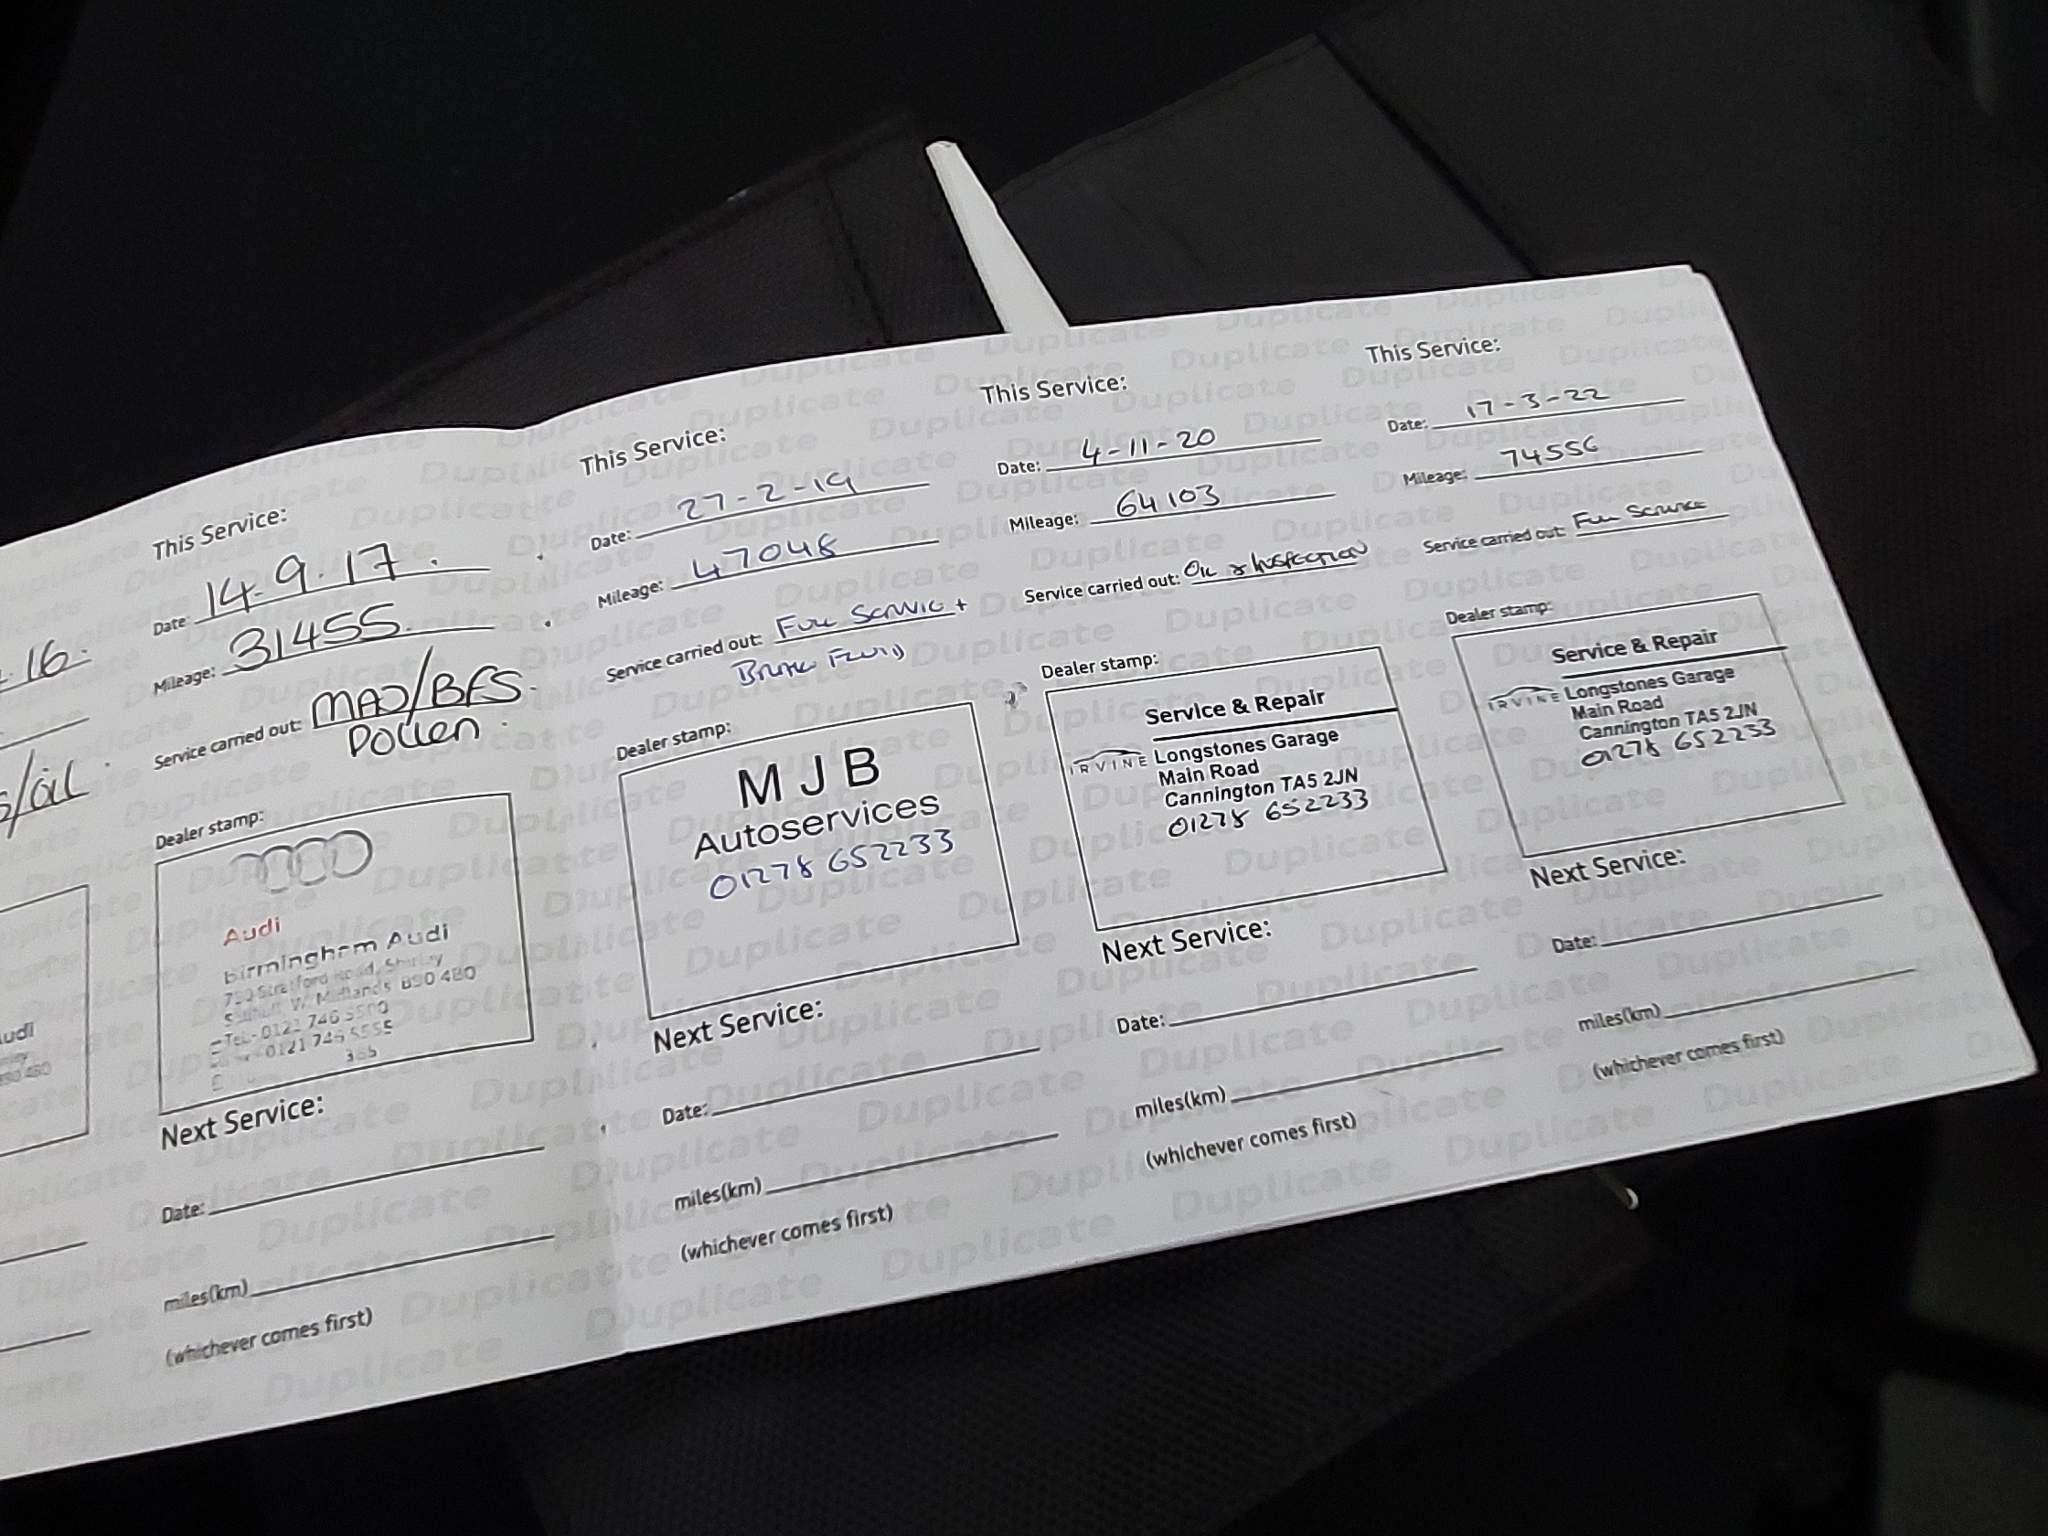 16.
/oil
This Service:
Date: 14.9.17.
Mileage: 31455.
Service carried out: MAJ/BFS.
Pollen.
Dealer stamp:
Audi
Birmingham Audi
Stratford Road, Shirley
W. Midlands B90 4BD
Tel:- 0121 746
0121 745 5555
Next Service:
Date:
miles(km)
(whichever comes first)
This Service:
Date: 27-2-19
Mileage: 47048
Service carried out: Full Service +
Brake Fluid
Dealer stamp:
M J B
Autoservices
01278 652233
Next Service:
Date:
miles(km)
(whichever comes first)
This Service:
Date: 4-11-20
Mileage: 64103
Service carried out: Oil & Inspection
Dealer stamp:
Service & Repair
IRVINE Longstones Garage
Main Road
Cannington TA5 2JN
01278 652233
Next Service:
Date:
miles(km)
(whichever comes first)
This Service:
Date: 17-3-22
Mileage: 74556
Service carried out: Full Service
Dealer stamp:
Service & Repair
IRVINE Longstones Garage
Main Road
Cannington TA5 2JN
01278 652233
Next Service:
Date:
miles(km)
(whichever comes first)